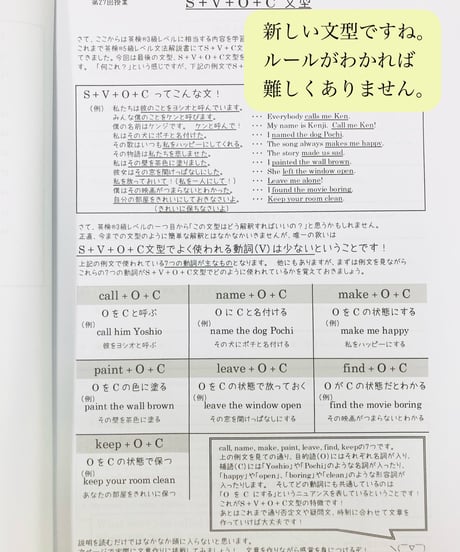 第27回授業
S+V+O+C 文型
新しい文型ですね。
ルールがわかれば
難しくありません。
S+V+O+C ってこんな文!
(例) 私たちは彼のことをヨシオと呼んでいます。
みんな僕のことをケンと呼びます。 ・・・ Everybody calls me Ken.
僕の名前はケンジです。 ケンと呼んで! ・・・ My name is Kenji. Call me Ken!
私はその犬にポチと名付けた。 ・・・ I named the dog Pochi.
その歌はいつも私をハッピーにしてくれる。 ・・・ The song always makes me happy.
その物語は私たちを悲しませた。 ・・・ The story made us sad.
私はその壁を茶色に塗りました。 ・・・ I painted the wall brown.
彼女はその窓を開けっぱなしにした。 ・・・ She left the window open.
私を放っておいて!(私を一人にして!) ・・・ Leave me alone!
僕はその映画がつまらないとわかった。 ・・・ I found the movie boring.
自分の部屋をきれいにしておきなさいよ。 ・・・ Keep your room clean.
(きれいに保ちなさいよ)
さて、英検®3級レベルの一つ目から「この文型はどう解釈すればいいの?」と思うかもしれません。
正直、今までの文型のように簡単な解釈とはなかなかいきませんが、唯一の救いは
S+V+O+C文型でよく使われる動詞(V)は少ないということです!
上記の例文で使われている7つの動詞が主なものとなります。 他にもありますが、まずは例文を見ながら
これらの7つの動詞がS+V+O+C文型でどのように使われているかを覚えておきましょう。
call + O + C
OをCと呼ぶ
(例)
call him Yoshio
彼をヨシオと呼ぶ
name + O + C
OにCと名付ける
(例)
name the dog Pochi
その犬にポチと名付ける
make + O + C
OをCの状態にする
(例)
make me happy
私をハッピーにする
paint + O + C
OをCの色に塗る
(例)
paint the wall brown
その壁を茶色に塗る
leave + O + C
OをCの状態で放っておく
(例)
leave the window open
その窓を開けっぱなしにする
find + O + C
OがCの状態だとわかる
(例)
find the movie boring
その映画がつまらないとわかる
keep + O + C
OをCの状態で保つ
(例)
keep your room clean
あなたの部屋をきれいに保つ
call, name, make, paint, leave, find, keepの7つです。
上の例文を見ての通り、目的語(O)にはそれぞれ名詞が入り、
補語(C)には「Yoshio」や「Pochi」のような名詞が入ったり、
「happy」や「open」、「boring」や「clean」のような形容詞が
入ったりします。 そしてどの動詞にも共通しているのは
「O を C にする」というニュアンスを表しているということです!
これがS+V+O+C文型の特徴です!
あとはこれまで通り否定文や疑問文、時制に合わせて文章を
作っていけば大丈夫です!
説明を読むだけではなかなか頭に入らないと思います。